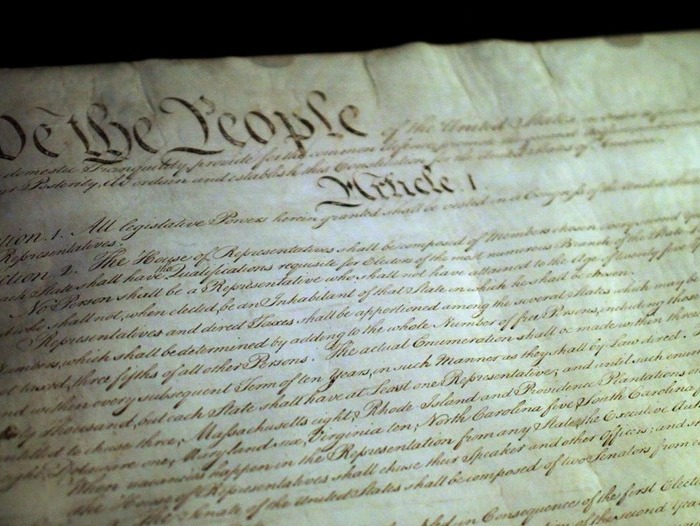 We the People of the United States,
domestic Tranquility, provide for the common defence,
Posterity, do ordain and establish this Constitution
Article I.
tion. 1. All legislative Powers herein granted shall be vested in a Congress of the United
Representatives.
tion. 2. The House of Representatives shall be composed of Members chosen
each State shall have the Qualifications requisite for Electors of the most numerous Branch of the State
No Person shall be a Representative who shall not have attained to the Age of twenty five
who shall not, when elected, be an Inhabitant of that State in which he shall be chosen.
Representatives and direct Taxes shall be apportioned among the several States which may
Numbers, which shall be determined by adding to the whole Number of free Persons, including those
not taxed, three fifths of all other Persons. The actual Enumeration shall be made within three
and within every subsequent Term of ten Years, in such Manner as they shall by Law direct.
thirty thousand, but each State shall have at Least one Representative; and until such enu
entitled to chuse three, Massachusetts eight, Rhode Island and Providence Plantations
eight, Delaware one, Maryland six, Virginia ten, North Carolina five, South Carolina
When vacancies happen in the Representation from any State, the Executive Au
The House of Representatives shall chuse their Speaker and other Officers; and s
The Senate of the United States shall be composed of two Senators from
in Consequence of the first Elect
of the second Year